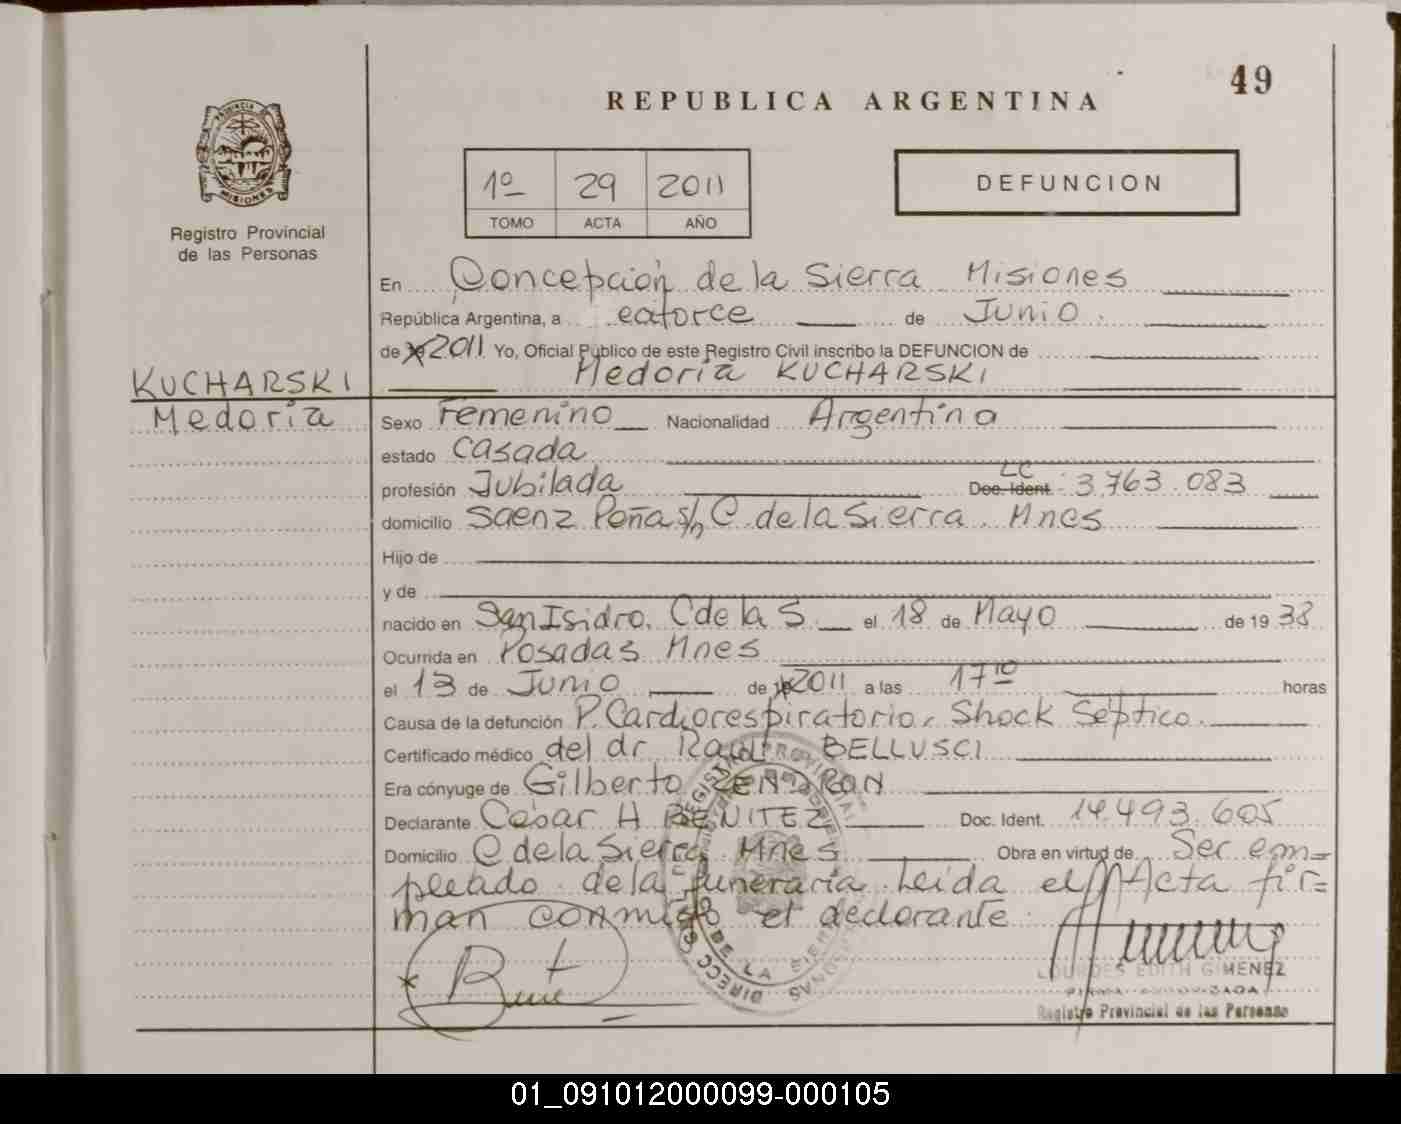 49
REPUBLICA ARGENTINA
PROVINCIA DE MISIONES
Registro Provincial
de las Personas
1º 29 2011
TOMO ACTA AÑO
DEFUNCION
En Concepción de la Sierra Misiones
República Argentina, a catorce de Junio
de 2011 Yo, Oficial Público de este Registro Civil inscribo la DEFUNCION de
KUCHARSKI Medoria KUCHARSKI
Medoria
Sexo Femenino Nacionalidad Argentina
estado Casada
profesión Jubilada LC Doc. Ident. 3.763.083
domicilio Saenz Peña s/n C. de la Sierra. Mnes
Hijo de
y de
nacido en San Isidro. C de la S el 18 de Mayo de 1938
Ocurrida en Posadas Mnes
el 13 de Junio de 2011 a las 17 10 horas
Causa de la defunción P. Cardiorespiratorio, Shock Séptico.
Certificado médico del dr. Raúl BELLUSCI
Era cónyuge de Gilberto
Declarante Cesar H BENITEZ Doc. Ident. 14.493.605
Domicilio C de la Sierra Mnes Obra en virtud de Ser em=
pleado de la funeraria. Leida el Acta fir=
man conmigo el declarante.
LOURDES EDITH GIMENEZ
FIRMA AUTORIZADA
Registro Provincial de las Personas
01_091012000099-000105